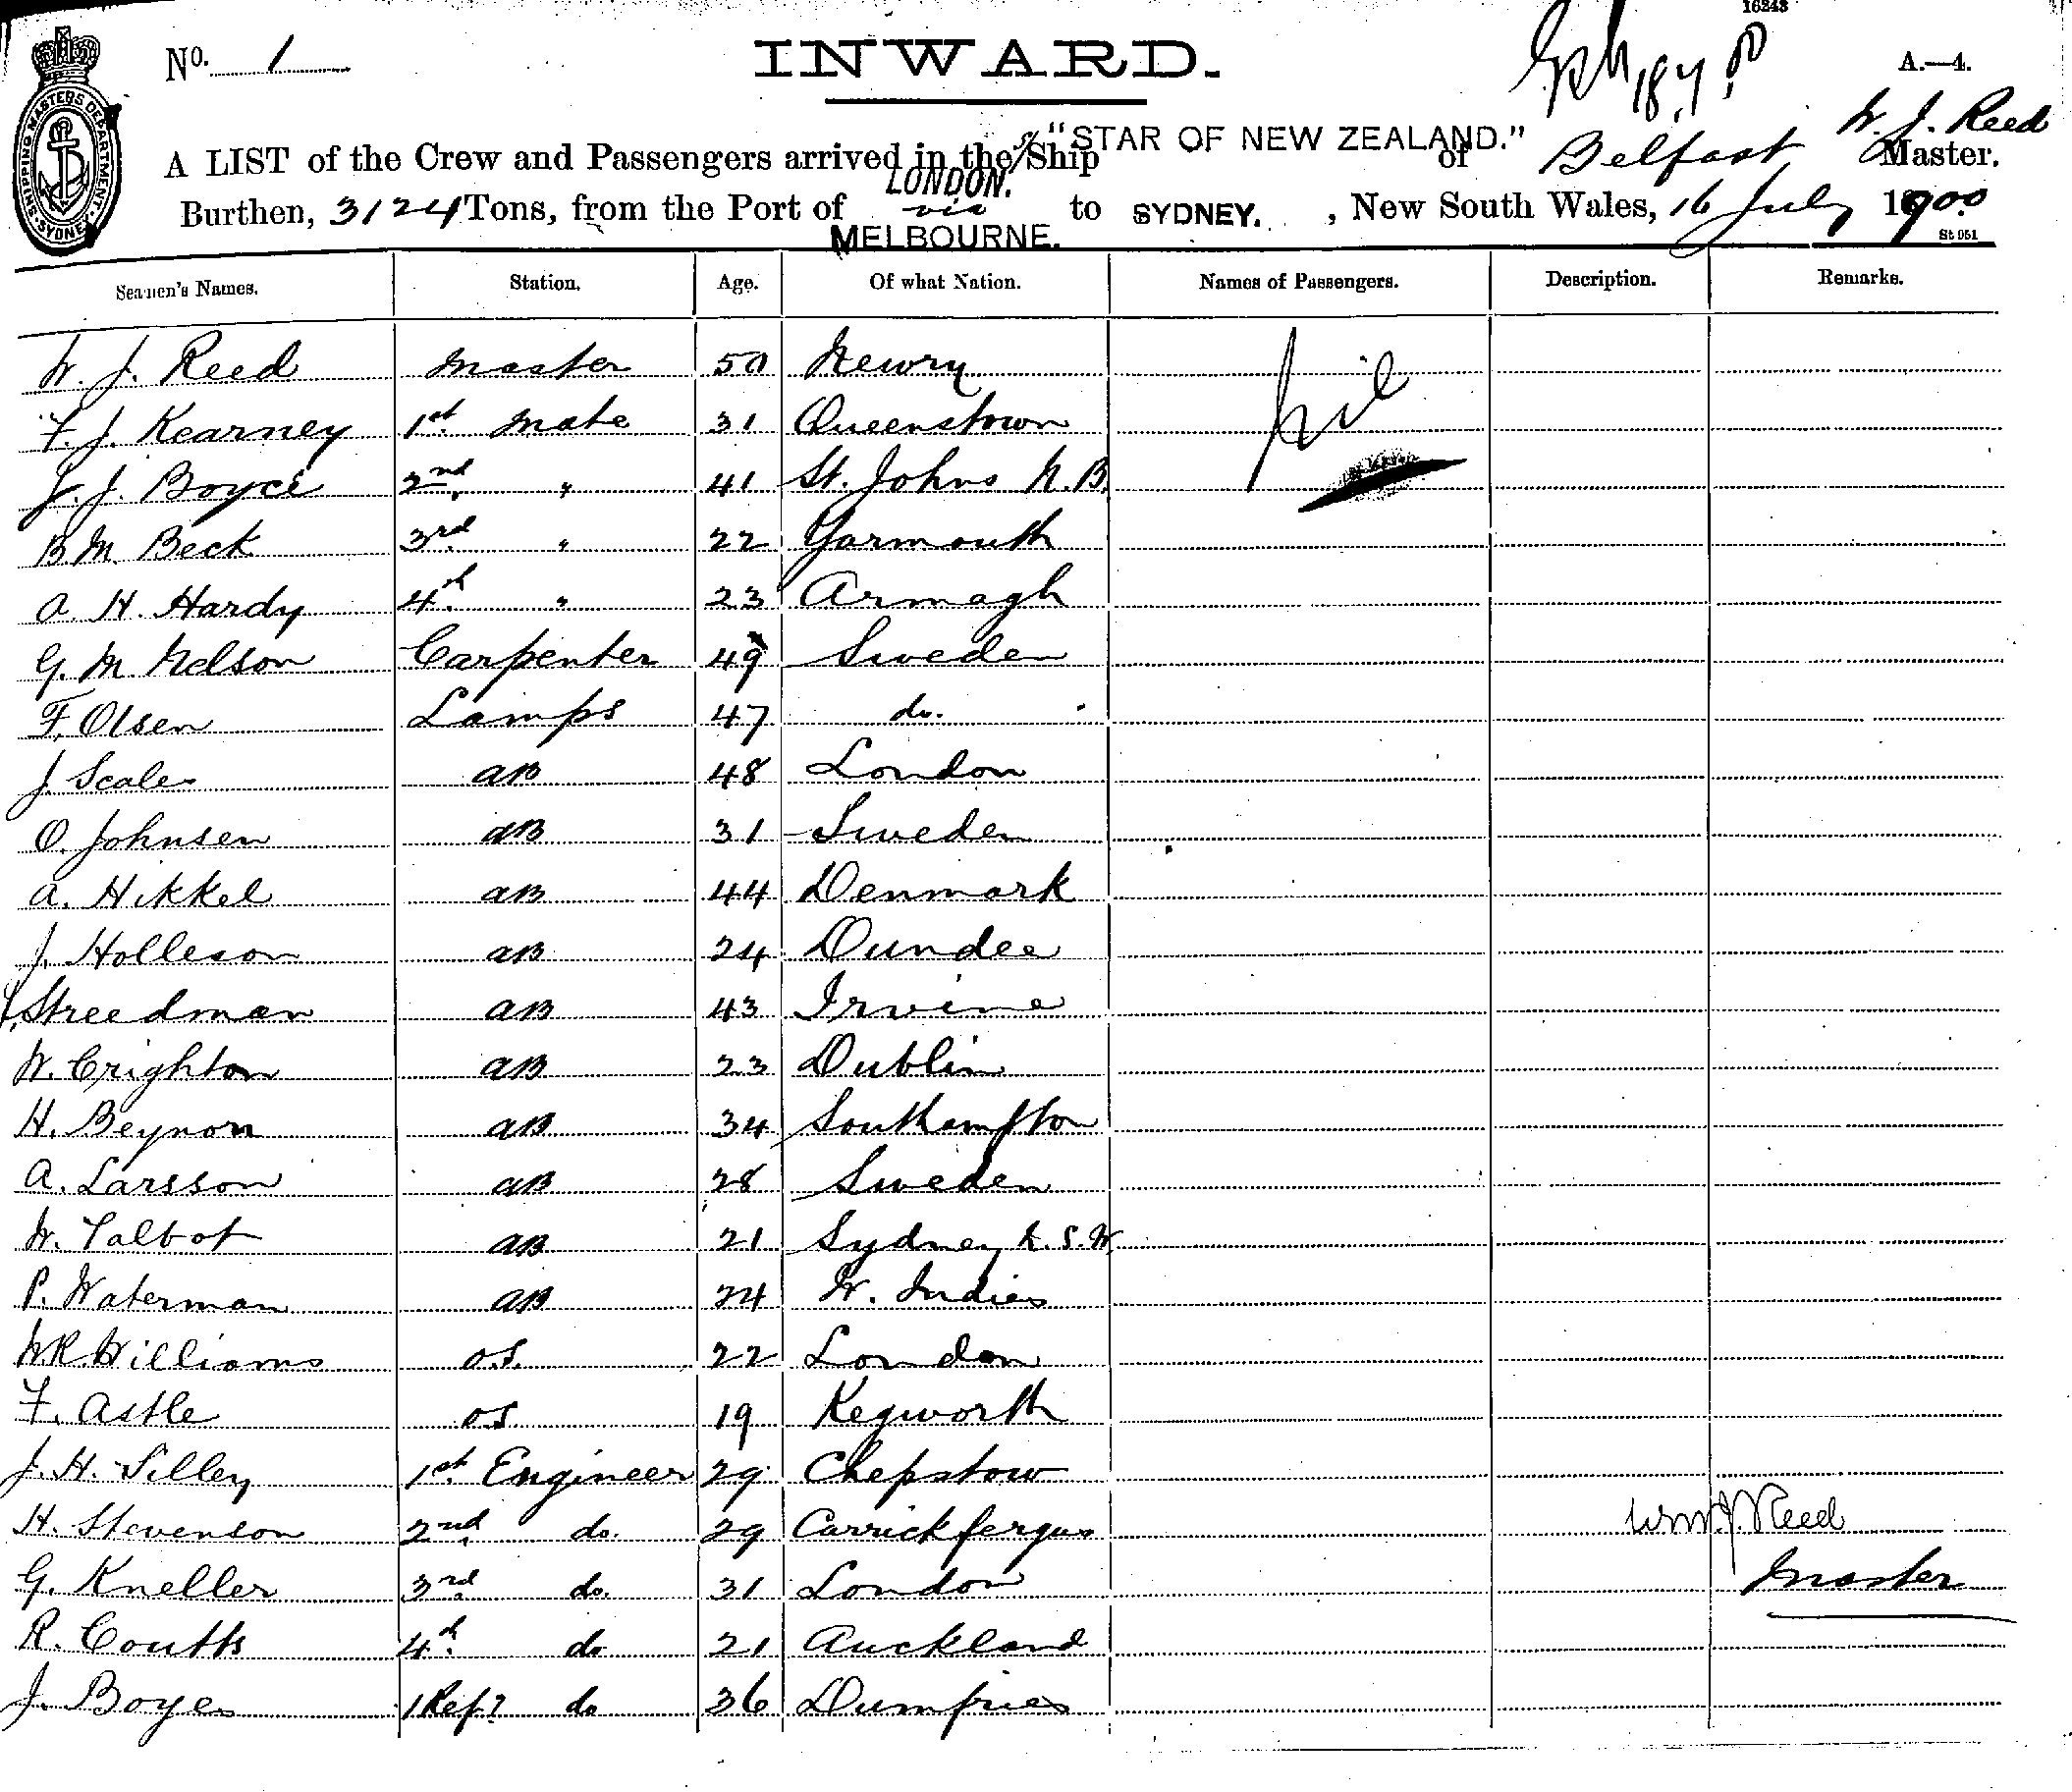 16243
No. 1
INWARD.
18.7.00
A.—4.
SHIPPING MASTERS DEPARTMENT. SYDNEY
A LIST of the Crew and Passengers arrived in the S/Ship "STAR OF NEW ZEALAND." of Belfast, W. J. Reed Master.
Burthen, 3124 Tons, from the Port of LONDON. via MELBOURNE. to SYDNEY. , New South Wales, 16 July 1900
St 951
Seamen's Names. Station. Age. Of what Nation. Names of Passengers. Description. Remarks.
W. J. Reed Master 50 Newry Nil
F. J. Kearney 1st Mate 31 Queenstown
J. J. Boyce 2nd " 41 St. Johns N.B.
B. M. Beck 3rd " 22 Yarmouth
A. H. Hardy 4th " 23 Armagh
G. M. Nelson Carpenter 49 Sweden
F. Olsen Lamps 47 do.
J. Scales AB 48 London
O. Johnsen AB 31 Sweden
A. Hikkel AB 44 Denmark
J. Holleson AB 24 Dundee
Streedman AB 43 Irvine
W. Crighton AB 23 Dublin
H. Beynon AB 34 Southampton
A. Larsson AB 28 Sweden
W. Talbot AB 21 Sydney N.S.W.
P. Waterman AB 24 W. Indies
W.R. Williams O.S. 22 London
F. Astle OS 19 Kegworth
J. H. Silley 1st Engineer 29 Chepstow
H. Stevenson 2nd do. 29 Carrickfergus Wm. J. Reed
G. Kneller 3rd do. 31 London Master
R. Coutts 4th do 21 Auckland
J. Boyes 1 Refr do 36 Dumfries